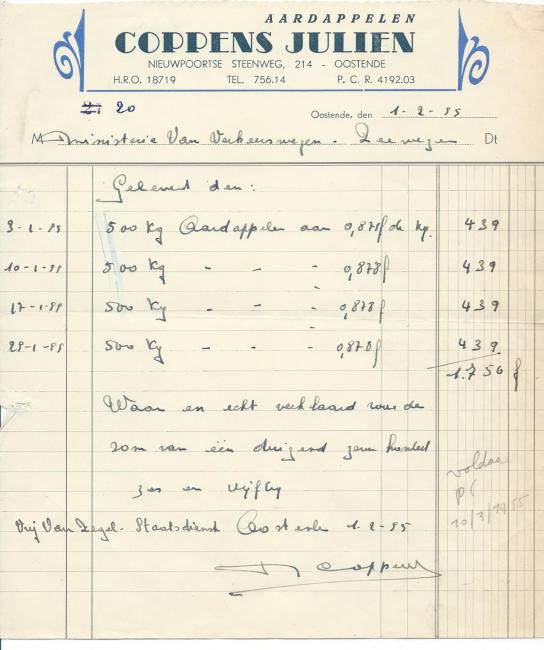 AARDAPPELEN
COPPENS JULIEN
NIEUWPOORTSE STEENWEG, 214 - OOSTENDE
H.R.O. 18719 TEL. 756.14 P. C. R. 4192.03
20
Oostende, den 1-2-55
M Ministerie Van Verkeerswezen - Zeewezen Dt
Geleverd den:
3-1-55 500 Kg Aardappelen aan 0,878f de kg. 439
10-1-55 500 Kg - - - 0,878f 439
17-1-55 500 Kg - - - 0,878f 439
500 Kg - - - 0,878f 439
1.756 f
Waar en echt verklaard voor de
som van één duizend zeven honderd
zes en vijftig
Vrij Van Zegel - Staatsdienst Oostende 1-2-55
Coppens
voldaan
PC
10/3/1955